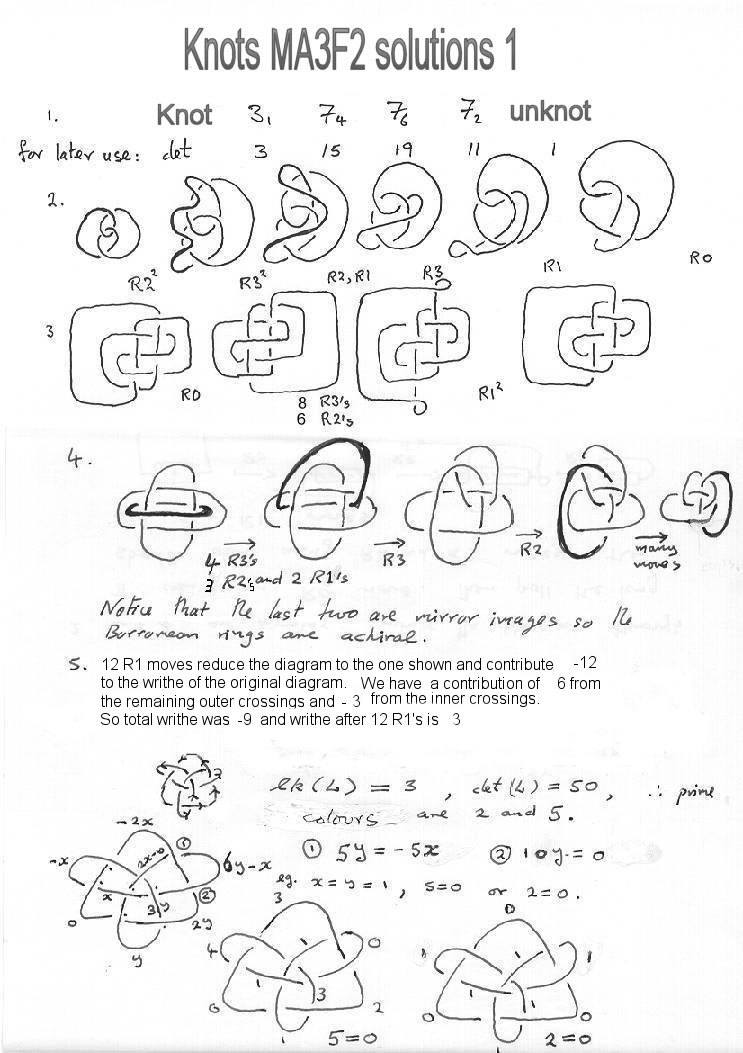 Knots MA3F2 solutions 1
1. Knot 3₁ 7₄ 7₆ 7₂ unknot
for later use: det 3 15 19 11 1
2.
R2² R3² R2, R1 R3 R1 R0
3
R0 8 R3's R1²
6 R2's
4.
4 R3's R3 R2 many
3 R2's and 2 R1's moves
Notice that the last two are mirror images so the
Borromean rings are achiral.
5. 12 R1 moves reduce the diagram to the one shown and contribute -12
to the writhe of the original diagram. We have a contribution of 6 from
the remaining outer crossings and - 3 from the inner crossings.
So total writhe was -9 and writhe after 12 R1's is 3
lk(L) = 3 , det(L) = 50, ∴ prime
colours are 2 and 5.
-2x
-x 2x=0 ① 6y-x ① 5y = -5x ② 10y = 0
x ② eg. x = y = 1 , 5=0 or 2=0.
0 3y 2y
y
3 0
4 0 1 1
3 1 1
0 2 0 0
1 5=0 1 2=0